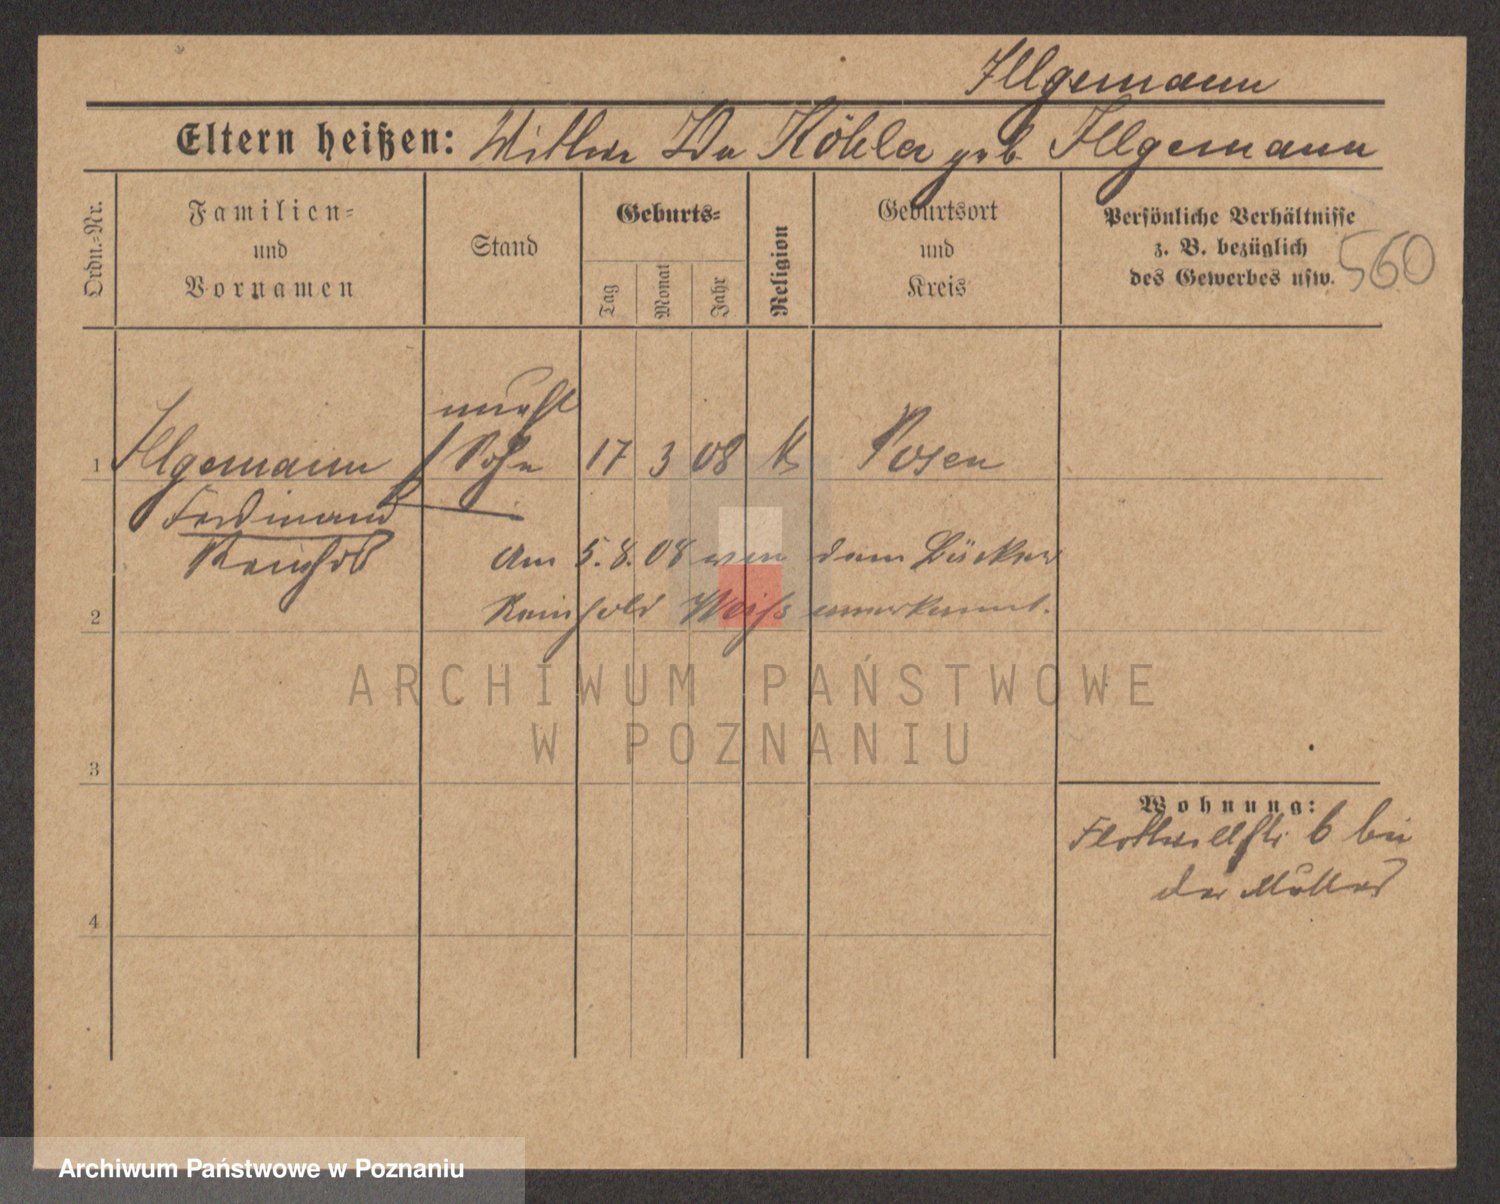 Illgemann
Eltern heißen: Witwe Ida Köhler geb. Illgemann
Ordn.-Nr.
Familien-
und
Vornamen
Stand
Geburts-
Tag
Monat
Jahr
Religion
Geburtsort
und
Kreis
Persönliche Verhältnisse
z. B. bezüglich
des Gewerbes usw.
560
unehl
1 Illgemann Sohn 17 3 08 Posen
Ferdinand
Reinhold
Am 5.8.08 von dem Bäcker
2 Reinhold Weiß anerkannt.
ARCHIWUM PAŃSTWOWE
W POZNANIU
3
Wohnung:
6 bei
der Mutter
4
Archiwum Państwowe w Poznaniu